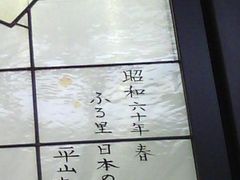 昭和六十年 春
ふる里 日本の
平山